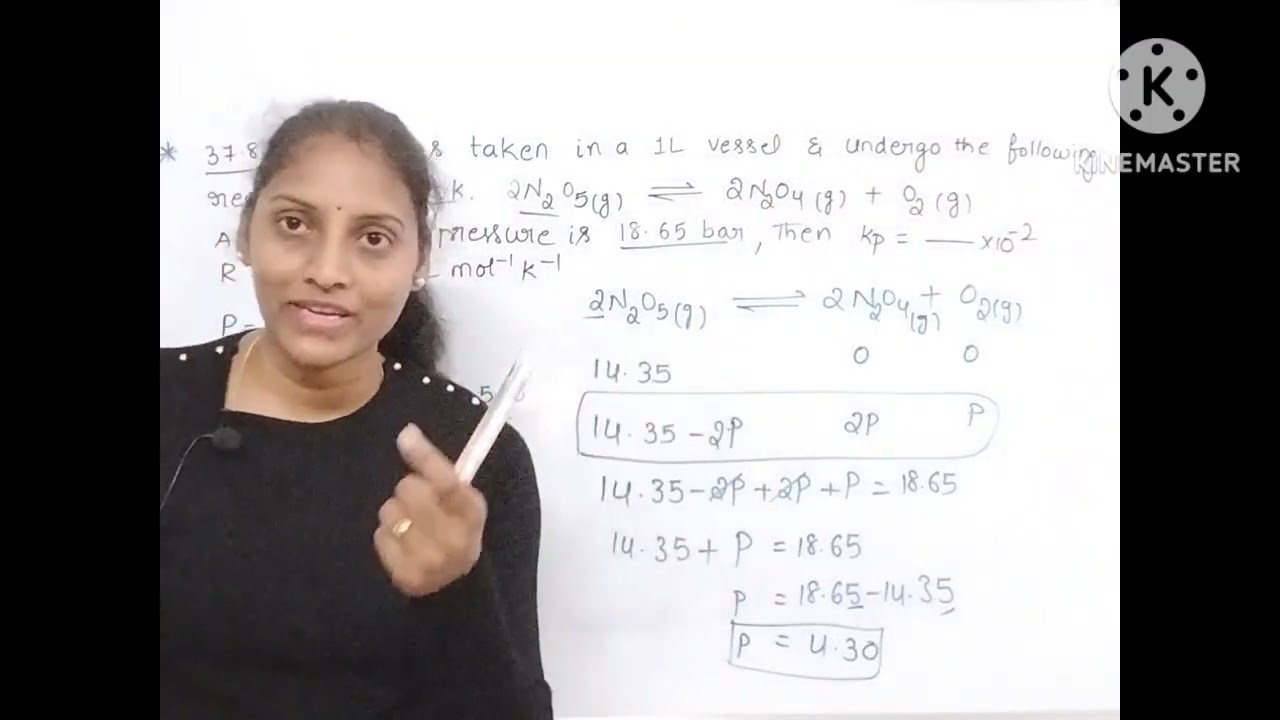 K
KINEMASTER
* 37.8 s taken in a 1L vessel & undergo the following
rea k. 2N2O5(g) ⇌ 2N2O4(g) + O2(g)
A pressure is 18.65 bar, Then Kp = — ×10⁻²
R mol⁻¹ K⁻¹
P=
5
2N2O5(g) ⇌ 2N2O4(g) + O2(g)
14.35 0 0
14.35-2P 2P P
14.35-2P+2P+P=18.65
14.35+P=18.65
P=18.65-14.35
P=4.30